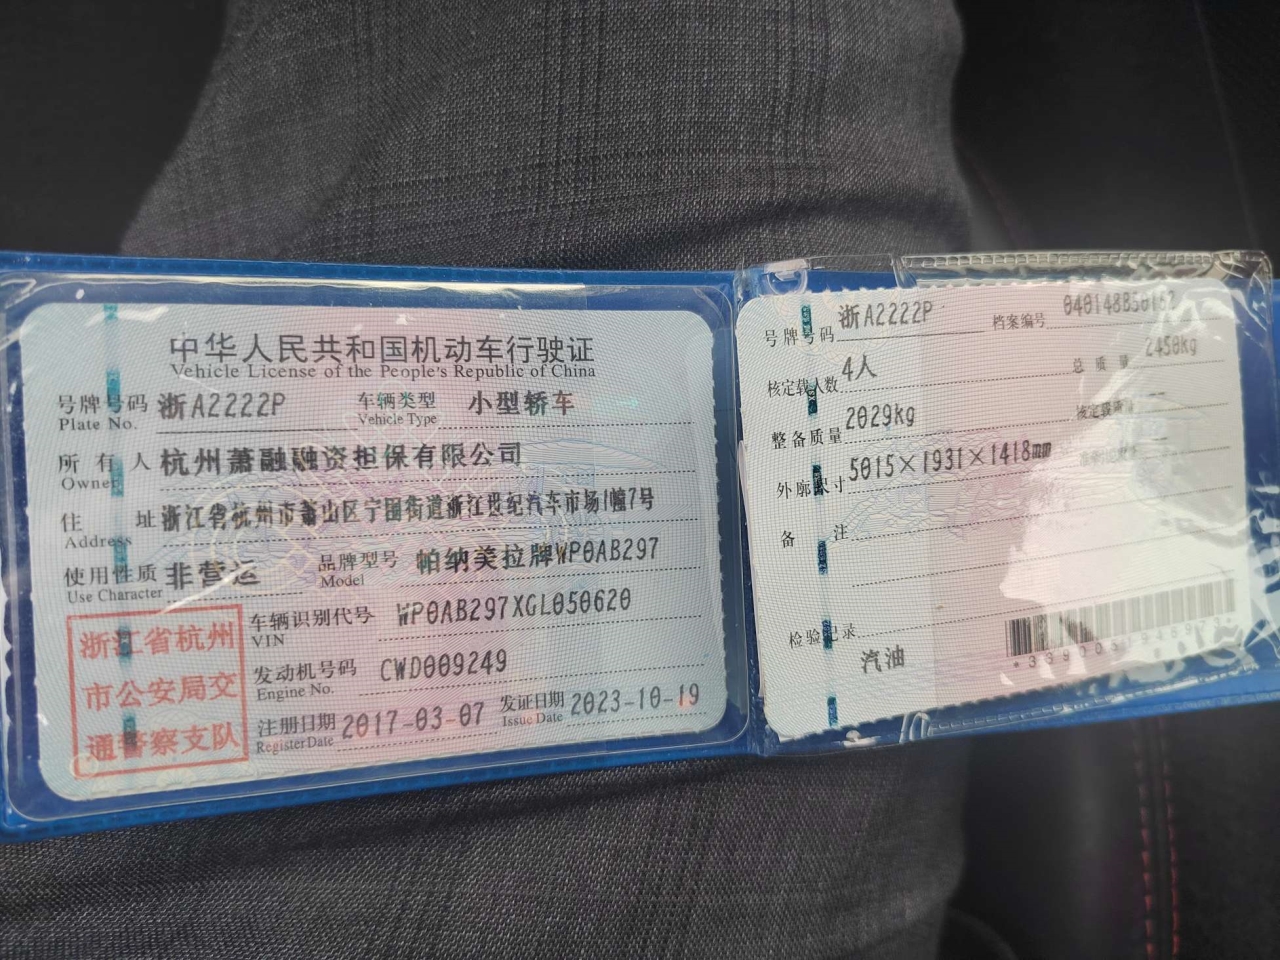 中华人民共和国机动车行驶证
Vehicle License of the People's Republic of China
号牌号码 浙A2222P 车辆类型 小型轿车
Plate No. Vehicle Type
所有人 杭州萧融融资担保有限公司
Owner
住址 浙江省杭州市萧山区宁围街道浙江世纪汽车市场1幢7号
Address
使用性质 非营运 品牌型号 帕纳美拉牌WP0AB297
Use Character Model
浙江省杭州
市公安局交
通警察支队
车辆识别代号 WP0AB297XGL050620
VIN
发动机号码 CWD009249
Engine No.
注册日期 2017-03-07 发证日期 2023-10-19
Register Date Issue Date
号牌号码 浙A2222P 档案编号
核定载人数 4人 总质量 2450kg
整备质量 2029kg 核定载质量
外廓尺寸 5015×1931×1418mm
备注
检验记录
汽油